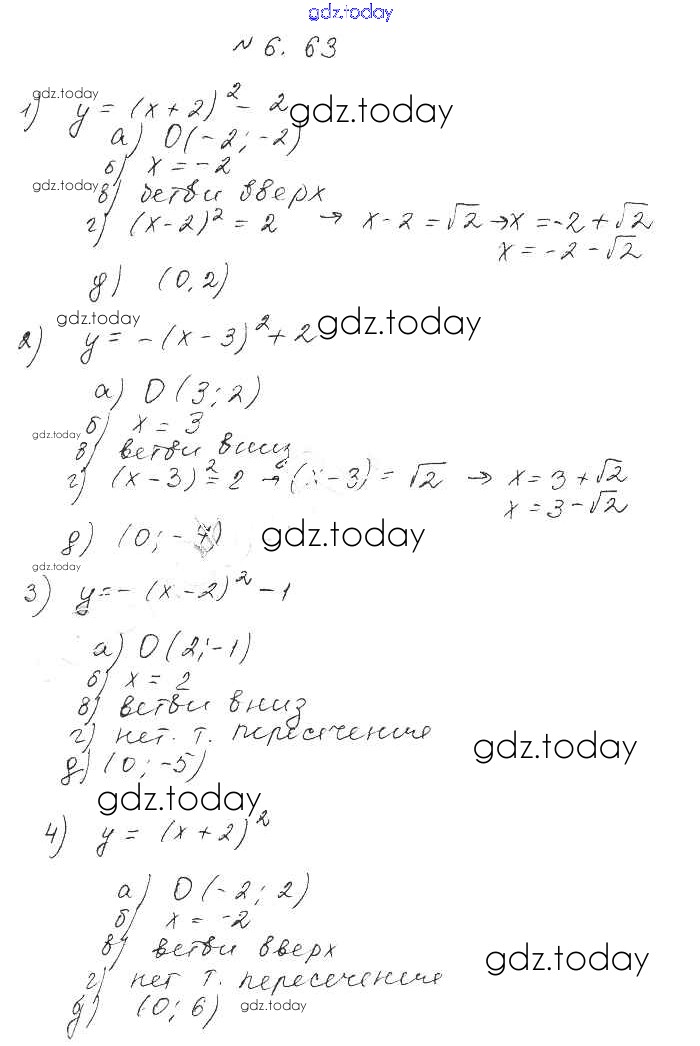 gdz.today
№ 6. 63
gdz.today
1) y = (x + 2)² - 2 gdz.today
а) O(-2; -2)
б) x = -2
gdz.today в) ветви вверх
г) (x-2)² = 2 → x-2 = √2 → x = -2 + √2
x = -2 - √2
д) (0, 2)
gdz.today
2) y = -(x - 3)² + 2 gdz.today
а) O (3; 2)
б) x = 3
gdz.today в) ветви вниз
г) (x - 3)² = 2 → (x - 3) = √2 → x = 3 + √2
x = 3 - √2
д) (0; -7) gdz.today
gdz.today
3) y = - (x - 2)² - 1
а) O(2; -1)
б) x = 2
в) ветви вниз
г) нет. т. пересечения gdz.today
д) (0; -5)
gdz.today
4) y = (x + 2)²
а) O(-2; 2)
б) x = -2
в) ветви вверх gdz.today
г) нет т. пересечения
д) (0; 6) gdz.today